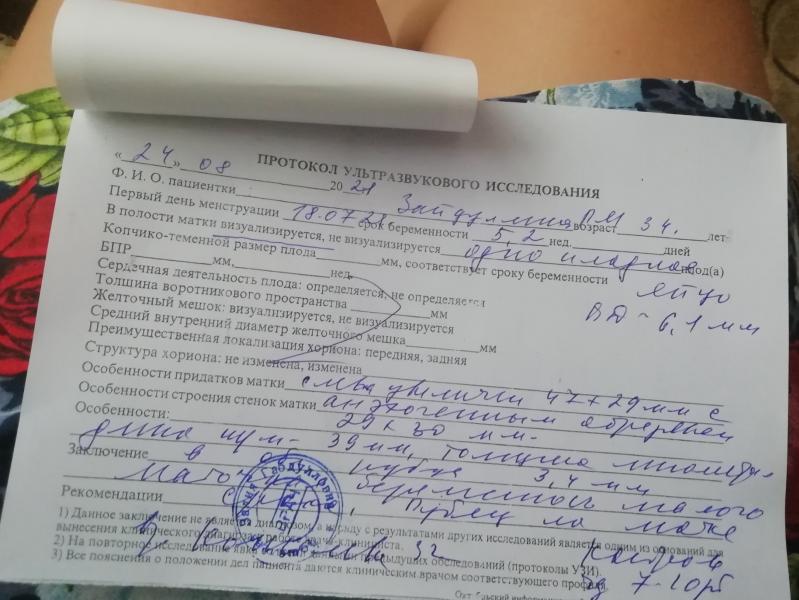 ПРОТОКОЛ УЛЬТРАЗВУКОВОГО ИССЛЕДОВАНИЯ
«24» 08 2021
Ф. И. О. пациентки возраст 34. лет
Первый день менструации 18.07.21 срок беременности 5,2 нед. дней
В полости матки визуализируется, не визуализируется одно плодное плод(а)
яйцо
Копчико-теменной размер плода мм, соответствует сроку беременности
ВД - 6,1 мм
БПР мм, нед.
Сердечная деятельность плода: определяется, не определяется
Толщина воротникового пространства мм
Желточный мешок: визуализируется, не визуализируется
Средний внутренний диаметр желточного мешка мм
Преимущественная локализация хориона: передняя, задняя
Структура хориона: не изменена, изменена
Особенности придатков матки слева увеличен 47х29 мм с
Особенности строения стенок матки анэхогенным образован
29х30 мм.
Особенности: длина 39 мм, толщина миометр-
в рубца 3,4 мм
Заключение беременность малого
Рекомендации Рубец на матке
1) Данное заключение не является диагнозом, а наряду с результатами других исследований является одним из оснований для
вынесения клинического диагноза в работе врача-клинициста.
2) На повторное исследование явка с данными предыдущих обследований (протоколы УЗИ).
3) Все пояснения о положении дел пациента даются клиническим врачом соответствующего профиля.